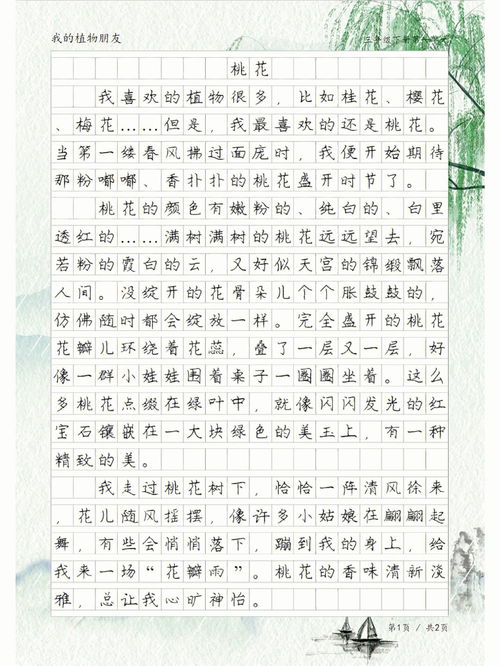 我的植物朋友
桃花
我喜欢的植物很多，比如桂花、樱花
、梅花……但是，我最喜欢的还是桃花。
当第一缕春风拂过面庞时，我便开始期待
那粉嘟嘟、香扑扑的桃花盛开时节了。
桃花的颜色有嫩粉的、纯白的、白里
透红的……满树满树的桃花远远望去，宛
若粉的霞白的云，又好似天宫的锦缎飘落
人间。没绽开的花骨朵儿个个胀鼓鼓的，
仿佛随时都会绽放一样。完全盛开的桃花
花瓣儿环绕着花蕊，叠了一层又一层，好
像一群小娃娃围着桌子一圈圈坐着。这么
多桃花点缀在绿叶中，就像闪闪发光的红
宝石镶嵌在一大块绿色的美玉上，有一种
精致的美。
我走过桃花树下，恰恰一阵清风徐来
，花儿随风摇摆，像许多小姑娘在翩翩起
舞，有些会悄悄落下，蹦到我的身上，给
我来一场“花瓣雨”。桃花的香味清新淡
雅，总让我心旷神怡。
第1页 / 共2页